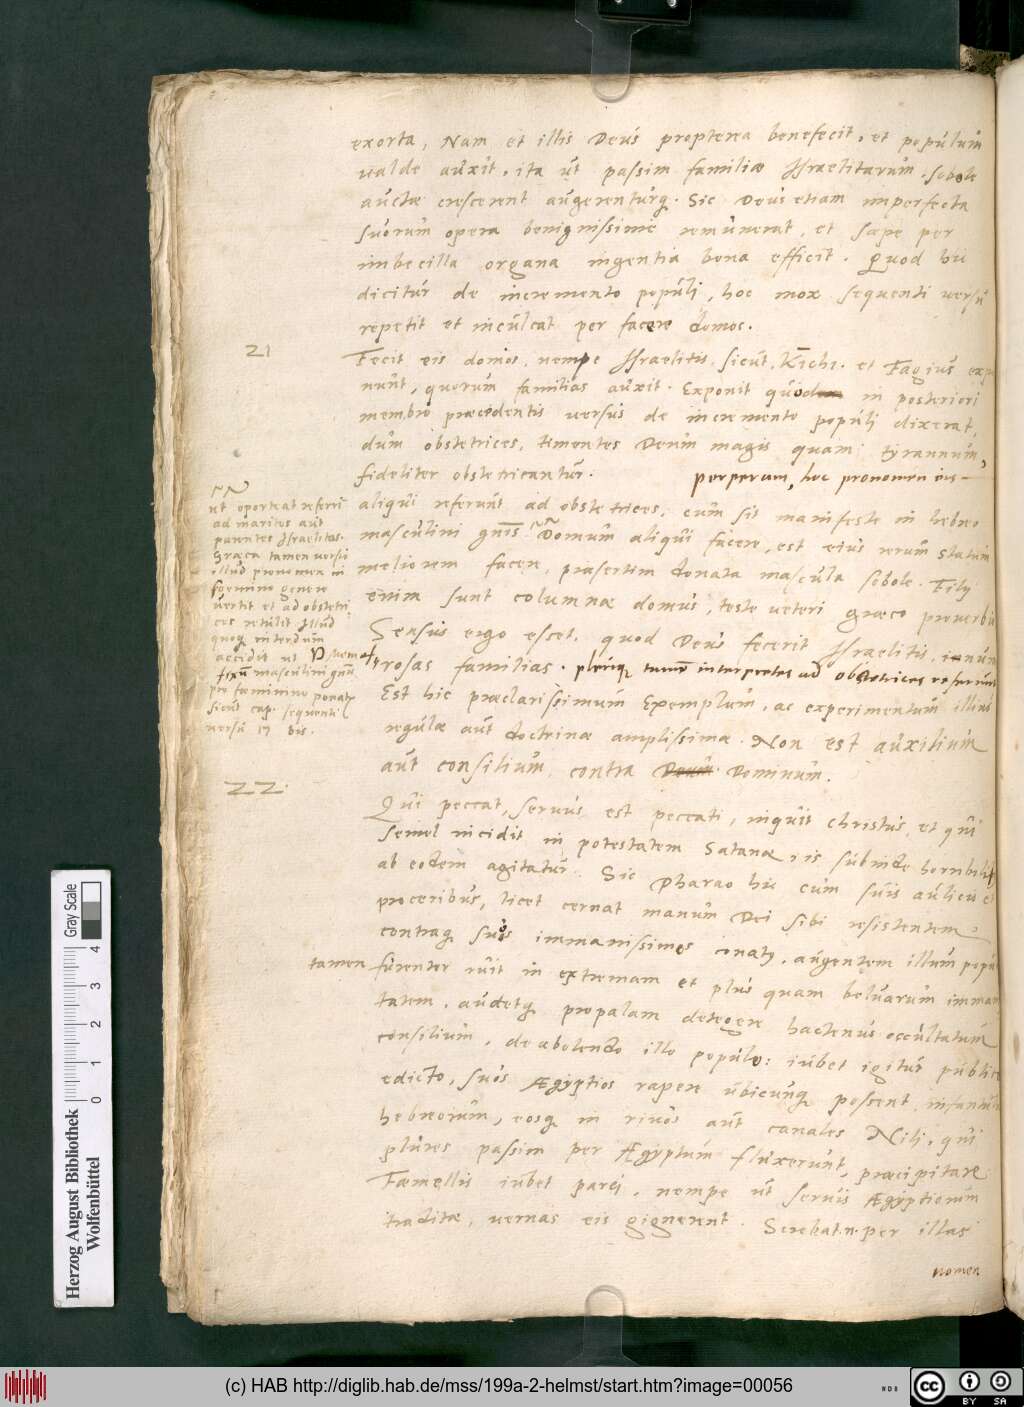 exorta, Nam et illis Deus propterea benefecit, et populum
valde auxit, ita ut passim familiae Israelitarum, sobole
auctae crescerent augerenturq. Sic Deus etiam imperfecta
suorum opera benignissime remunerat, et saepe per
imbecilla organa ingentia bona efficit. Quod hic
dicitur de incremento populi, hoc mox sequenti versu
repetit et inculcat per facere domos.
21
Fecit eis domos, nempe Israelitis sicut Kimhi. et Fagius expo
nunt, quorum familias auxit. Exponit quod in posteriori
membro praecedentis versus de incremento populi dixerat,
dum obstetrices, timentes Deum magis quam tyrannum,
fideliter obstetricantur. perperam, hoc pronomen eis
aliqui referunt ad obstetrices, cum sit manifeste in hebreo
masculini gnis. Domum aliqui facere, est eius rerum statum
meliorem facere, praesertim donata mascula sobole. Filij
enim sunt columnae domus, teste veteri graeco proverbio
Sensus ergo esset, quod Deus fecerit Israelitis, innum
rosas familias. pleriq tamen interpretes ad obstetrices referunt
Est hic praeclarissimum Exemplum, ac experimentum illius
regulae aut doctrinae amplissimae. Non est auxilium
aut consilium contra Dominum.
ut oporteat referri
ad maritos aut
parentes Israelitas.
Graeca tamen versio
illud pronomen in
foemino genere
vertit et ad obstetri
ces retulit. Illud
quoq interdum
accidit ut
masculini gnis
pro faeminino ponatr
sicut cap. sequenti
versu 17 bis.
22.
Qui peccat, servus est peccati, inquit Christus, et qui
semel incidit in potestatem Satanae, is subinde horribilit
ab eodem agitatur. Sic Pharao hic cum suis aulicis et
proceribus, licet cernat manum Dei sibi resistentem,
contraq suos immanissimos conatus, augentem illum popu
tamen
furenter ruit in extremam et plus quam beluarum imma
tatem, audetq propalam detegere hactenus occultatum
consilium, de abolendo illo populo: iubet igitur publico
edicto, suos Aegyptios rapere ubicunq possent infantes
hebreorum, eosq in rivos aut canales Nili, qui
plures passim per Aegyptum fluxerunt, praecipitare
Faemellis iubet parci, nempe ut servis Aegyptiorum
traditae, vernas eis gignerent. Sciebat.n. per illas
nomen
Herzog August Bibliothek
Wolfenbüttel
0 1 2 3 4
Gray Scale
(c) HAB http://diglib.hab.de/mss/199a-2-helmst/start.htm?image=00056
cc BY SA